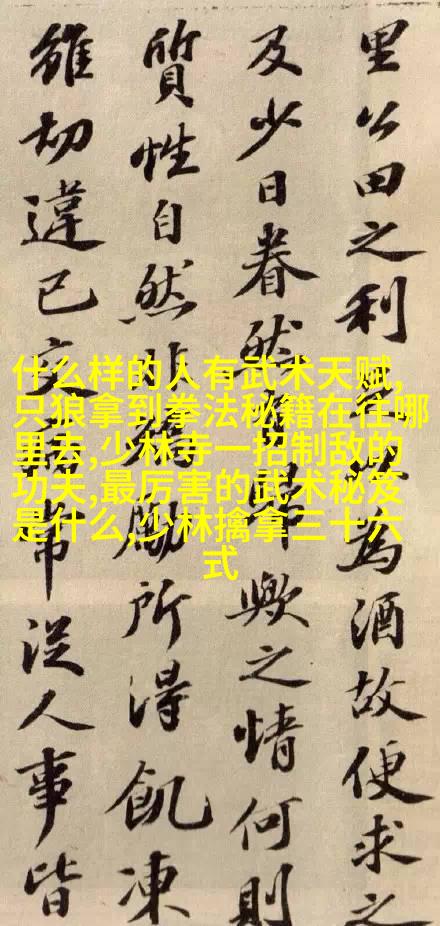 里公田之利為酒故便求之
及少日眷然歸歟之情何則
質性自然非勵所得飢凍
雖切違已交常從人事皆
什么样的人有武术天赋,
只狼拿到拳法秘籍在往哪
里去,少林寺一招制敌的
功夫,最厉害的武术秘笈
是什么,少林擒拿三十六
式